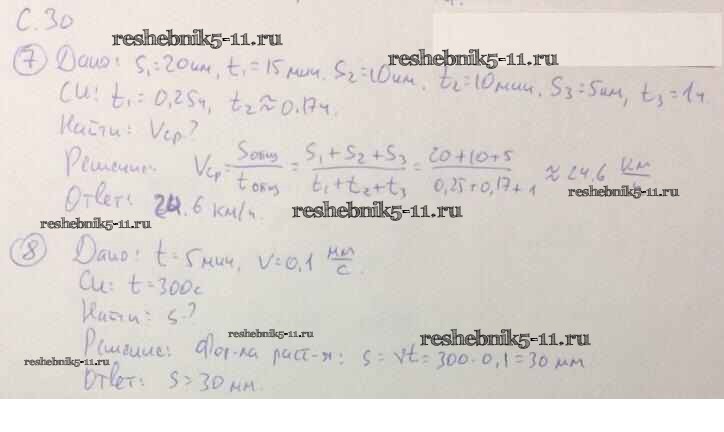 С. 30
reshebnik5-11.ru
7 Дано: S₁=20км, t₁=15 мин. S₂=10км. t₂=10мин. S₃=5км, t₃=1ч.
reshebnik5-11.ru
Си: t₁=0,25ч, t₂≈0,17ч.
Найти: Vср?
Решение: Vср=Sобщ/tобщ=(S₁+S₂+S₃)/(t₁+t₂+t₃)=(20+10+5)/(0,25+0,17+1)≈24,6 км/
reshebnik5-11.ru
Ответ: 24.6 км/ч.
reshebnik5-11.ru
reshebnik5-11.ru
8 Дано: t=5мин, v=0,1 мм/с.
Си: t=300с
Найти: s?
reshebnik5-11.ru
reshebnik5-11.ru
Решение: Фор-ла расст-я: s=vt=300·0,1=30 мм
reshebnik5-11.ru
Ответ: s=30мм.